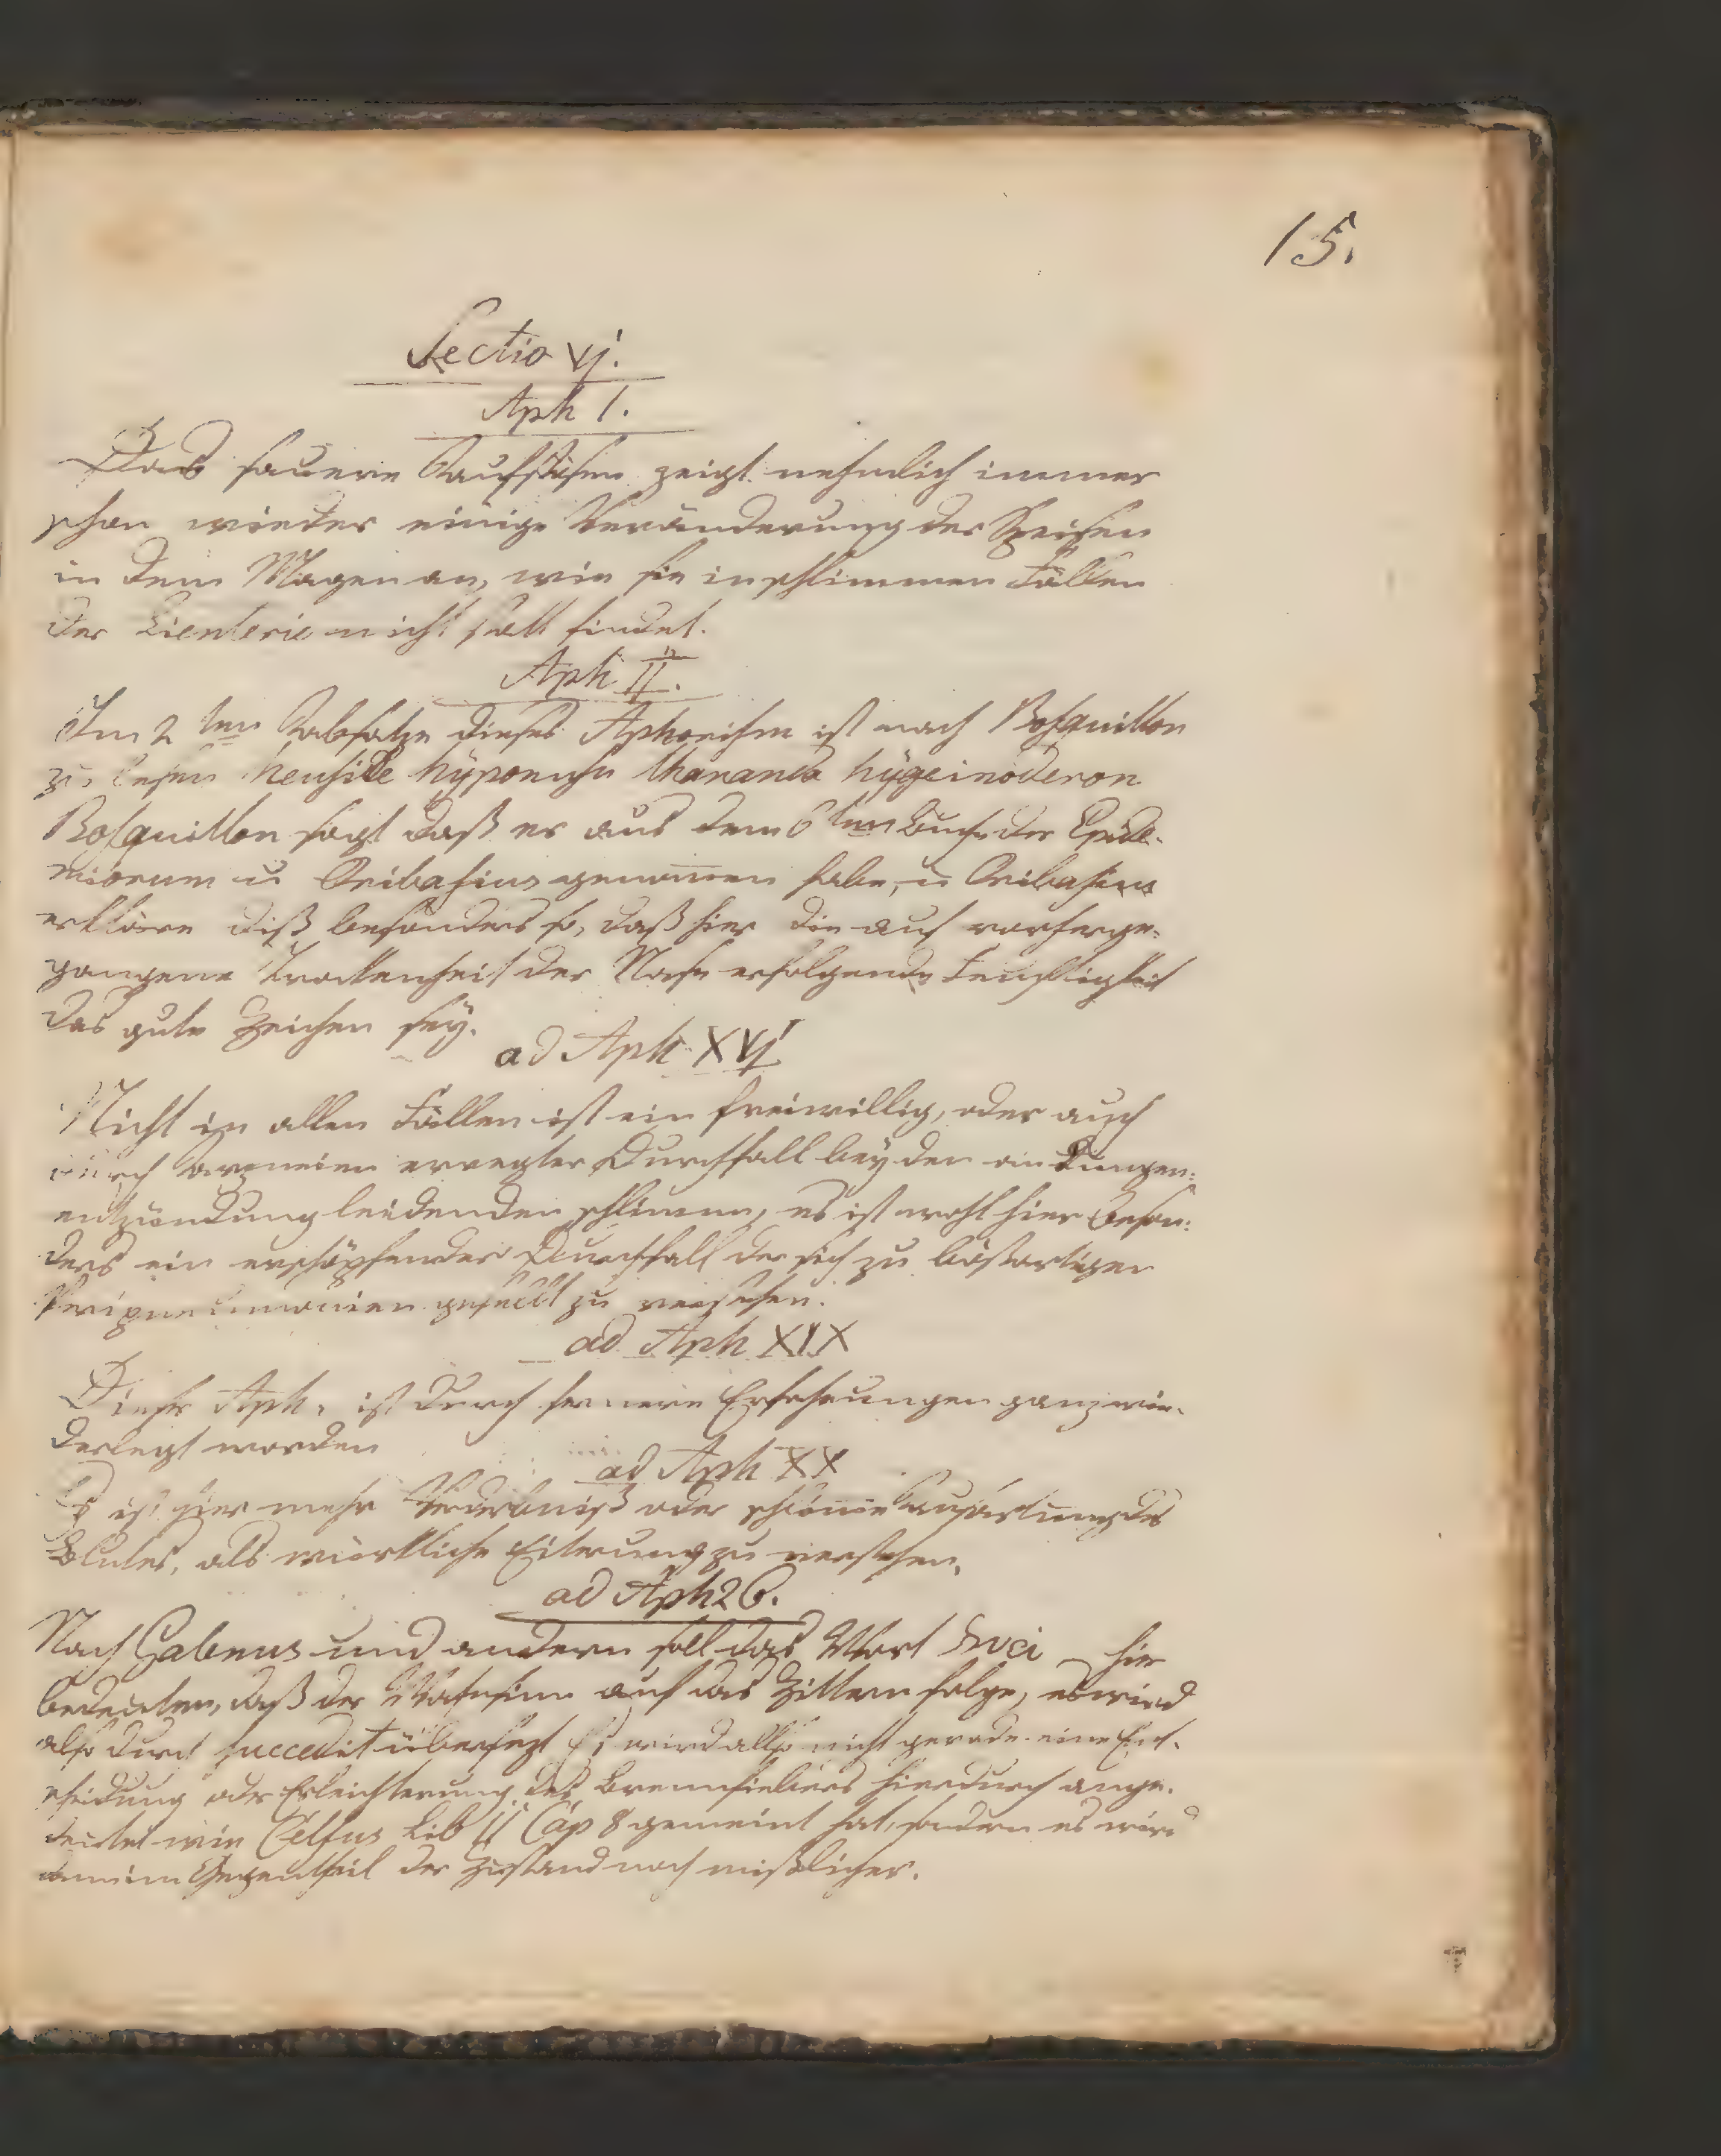 15.
Sectio VI.
Aph 1.
Das sauere Aufstosen zeigt nehmlich immer
schon wieder einige Veränderung der Speisen
in dem Magen an, wie sie in schlimmen Fällen
der Lienterie nicht statt findet.
Aph II.
Im 2ten Absatze dieses Aphorism ist nach Bosquillon
zu lesen hygeinoderon
Bosquillon sagt daß er aus dem 6ten Buche der Epide-
miorum u Oribasius genommen habe, u Oribasius
erkläre diß besonders so, daß hier die auf vorherge-
gangene Trockenheit der Nase erfolgende Feuchtigkeit
das gute Zeichen sey.
ad Aph XVI
Nicht in allen Fällen ist ein freiwillig, oder auch
durch Arzneien erregter Durchfall bey den an Lungen-
entzündung leidenden schlimm, es ist wohl hier beson-
ders ein erschöpfender Durchfall der sich zu bösartigen
Peripneumonien gesellt zu verstehen.
ad Aph XIX
Dieser Aph. ist durch fernere Erfahrungen ganz wie-
derlegt worden
ad Aph XX
Es ist hier mehr Verderbniß oder schlimme Ausartung des
Blutes, als würkliche Eiterung zu verstehen.
ad Aph 26.
Nach Galenus und andern soll das Wort hier
bedeuten, daß der Wahnsinn auf das Zittern folge, es wird
also durch succedit übersezt Es wird allso nicht gerade eine Ent-
scheidung oder Erleichterung des Brennfiebers hierdurch ange-
deutet wie Celsus Lib II Cap 8 gemeint hat, sondern es wird
im Gegentheil der Zustand noch mißlicher.